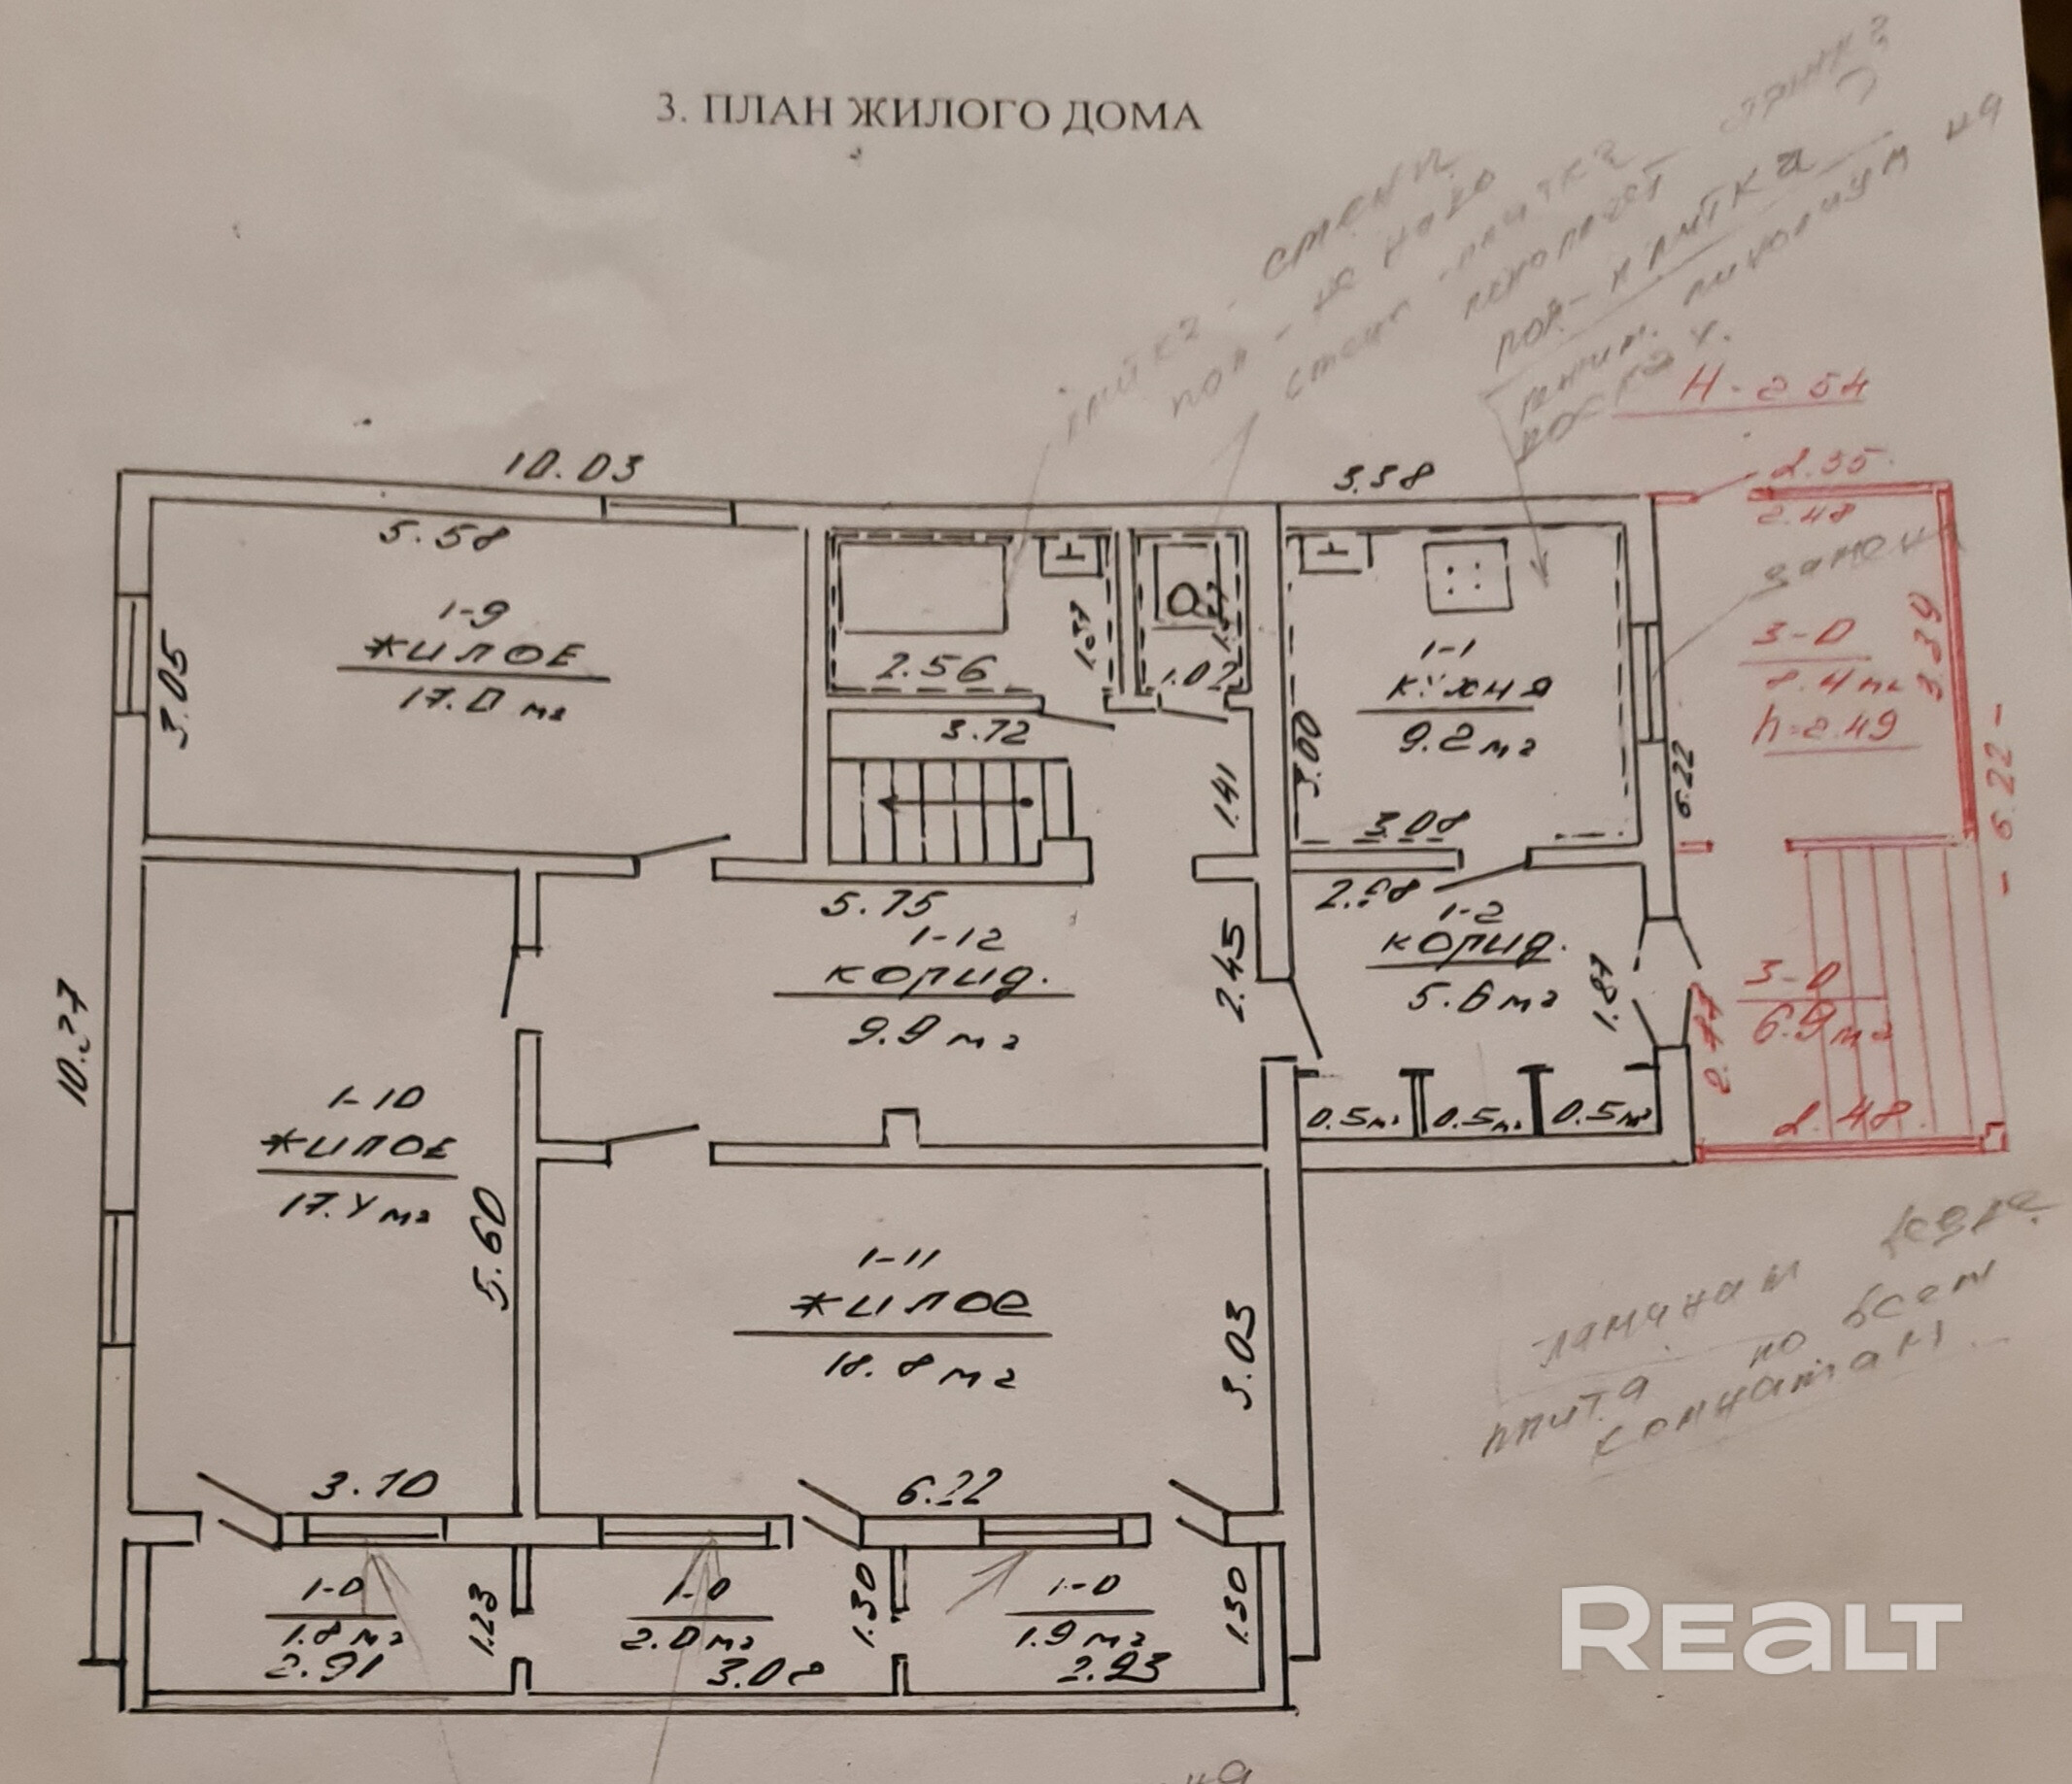 3. ПЛАН ЖИЛОГО ДОМА
стены
пол - не надо
пол - плитка
линолиум на
H-2.54
10.03
3.38
2.35
2.48
5.58
1-9
жилое
17.0 м2
3.05
2.56
1.02
3.72
1.41
1-1
кухня
9.2 м2
3.00
3.08
6.22
3-0
8.4 м2
h=2.49
3.39
- 6.22 -
5.75
1-12
корид.
9.9 м2
2.45
1-2
корид.
5.6 м2
1.87
3-0
6.9 м2
2.48
0.5 м2
0.5 м2
0.5 м2
10.27
1-10
жилое
17.4 м2
5.60
3.10
1-11
жилое
18.8 м2
3.03
6.22
ламинат
плита по всем
комнатам
1-0
1.8 м2
2.91
1.23
1-0
2.0 м2
1.30
1-0
1.9 м2
2.93
1.30
REALT